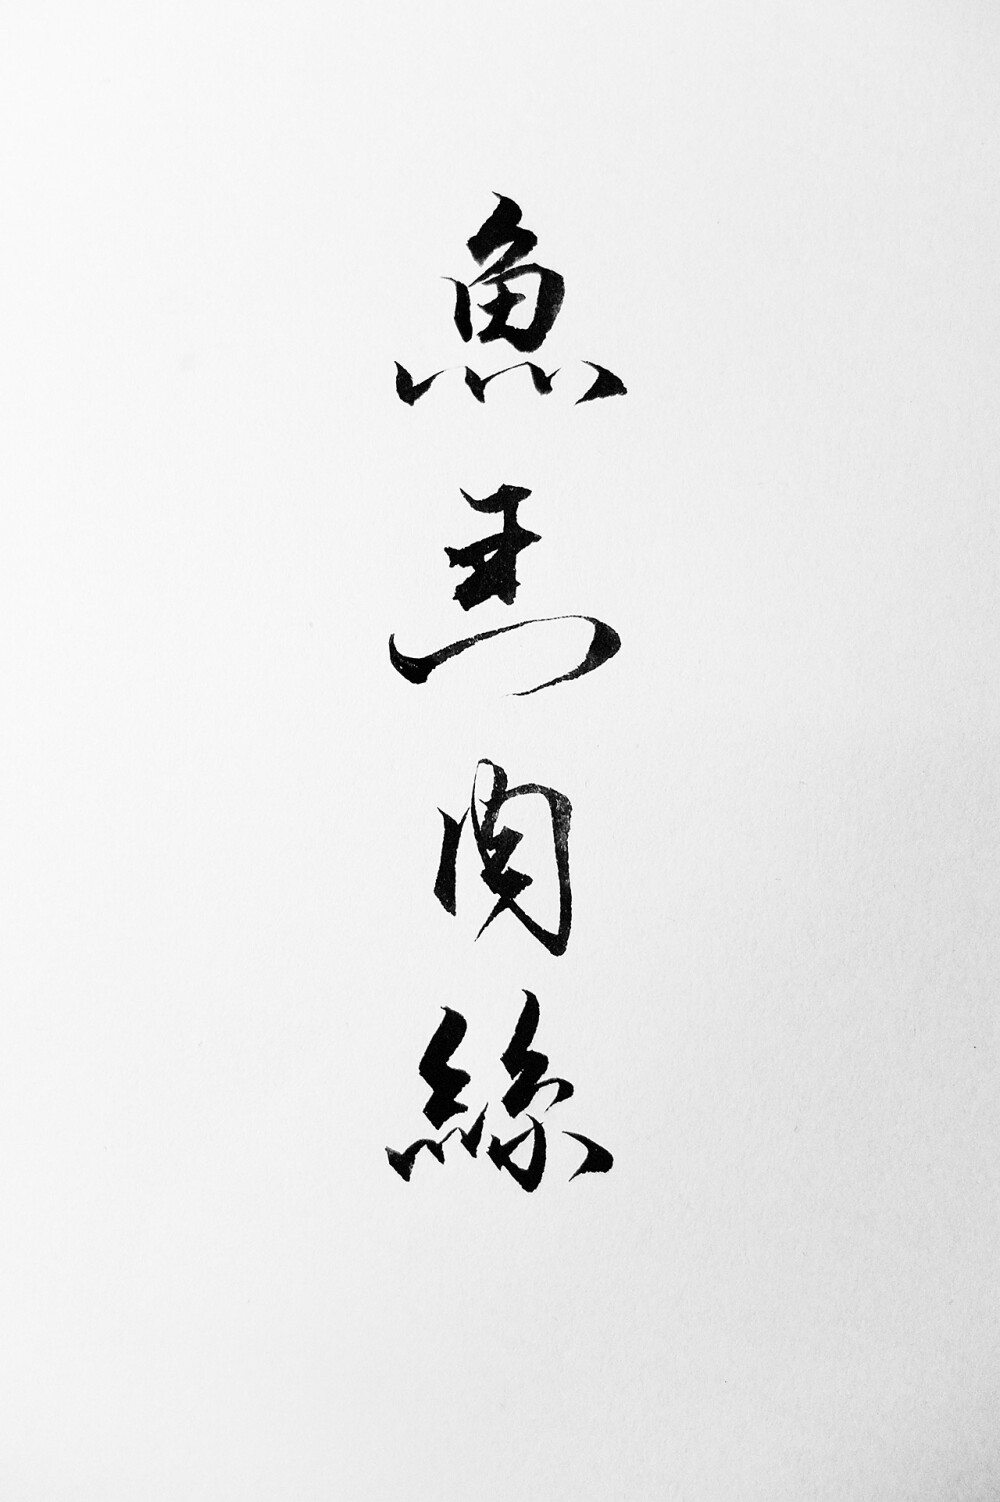 魚香肉絲